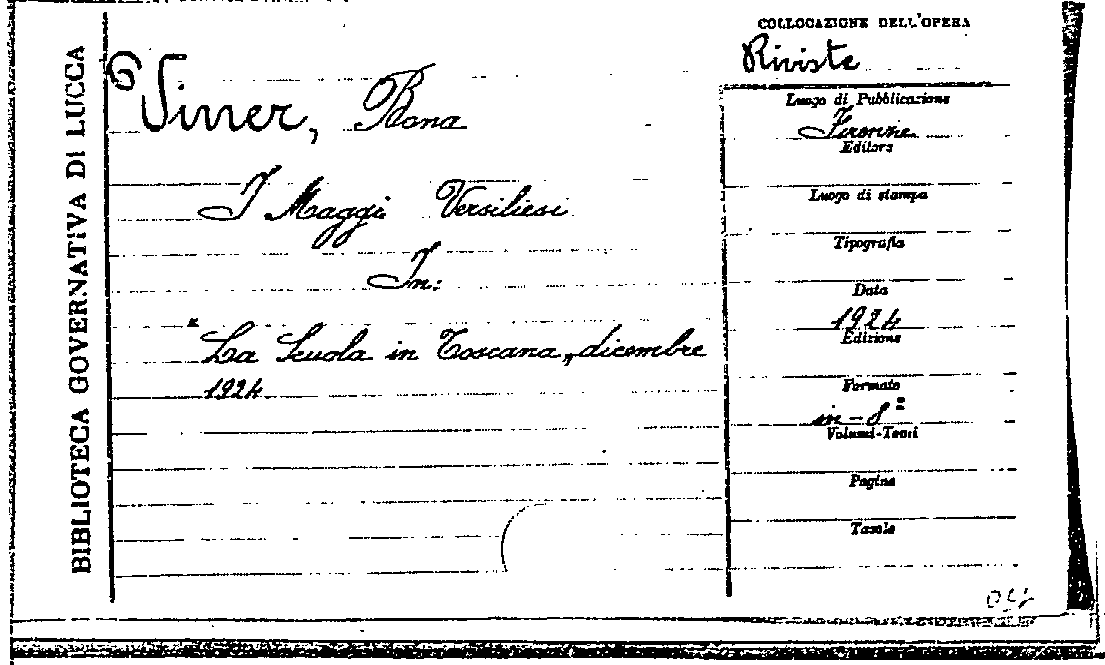 BIBLIOTECA GOVERNATIVA DI LUCCA
Viner, Bona
I Maggi Versiliesi
In:
"La Scuola in Toscana„ dicembre
1924
COLLOCAZIONE DELL'OPERA
Riviste
Luogo di Pubblicazione
Firenze
Editore
Luogo di stampa
Tipografia
Data
1924
Edizione
Formato
in-8º
Volumi-Tomi
Pagine
Tavole